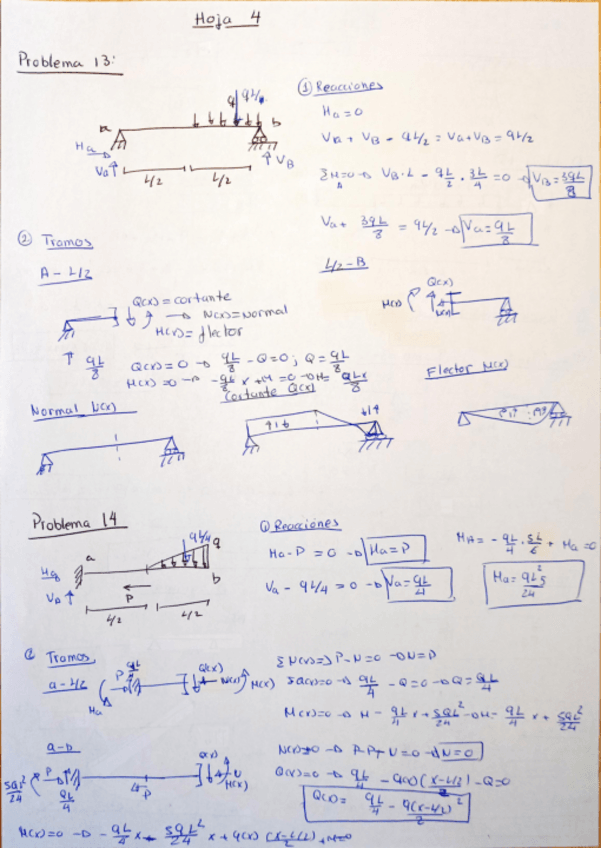 Hoja 4
Problema 13:
q qL/2
a b
Ha
Va VB
L/2 L/2
① Reacciones
Ha = 0
VA + VB - qL/2 = VA + VB = qL/2
ΣM=0 → VB·L - qL/2 · 3L/4 = 0 → VB = 3qL/8
A
Va + 3qL/8 = qL/2 → Va = qL/8
② Tramos
A - L/2
Q(x) = cortante
→ N(x) = Normal
M(x) = flector
qL/8
Q(x) = 0 → qL/8 - Q = 0; Q = qL/8
M(x) = 0 → -qL/8 x + M = 0 → M = qLx/8
L/2 - B
Q(x)
M(x) N(x)
Normal N(x)
Cortante Q(x)
Flector M(x)
Problema 14
a qL/4 q
Ha
VA P b
L/2 L/2
① Reacciones
Ha - P = 0 → Ha = P
Va - qL/4 = 0 → Va = qL/4
MA = - qL/4 · 5L/6 + Ma = 0
Ma = qL²5/24
② Tramos
a - L/2
P qL/4 Q(x) N(x) M(x)
Ma
ΣN(x) = P - N = 0 → N = P
ΣQ(x) = 0 → qL/4 - Q = 0 → Q = qL/4
M(x) = 0 → M - qL/4 x + 5qL²/24 → M = qL/4 x + 5qL²/24
a - b
5qL²/24 P qL/4 P Q(x) N M(x)
N(x) = 0 → P - P + N = 0 → N = 0
Q(x) = 0 → qL/4 - q(x) (x-L/2)/2 - Q = 0
Q(x) = qL/4 - q(x-L/2)²/2
M(x) = 0 → - qL/4 x - 5qL²/24 x + q(x) (x-L/2)/2 + M = 0